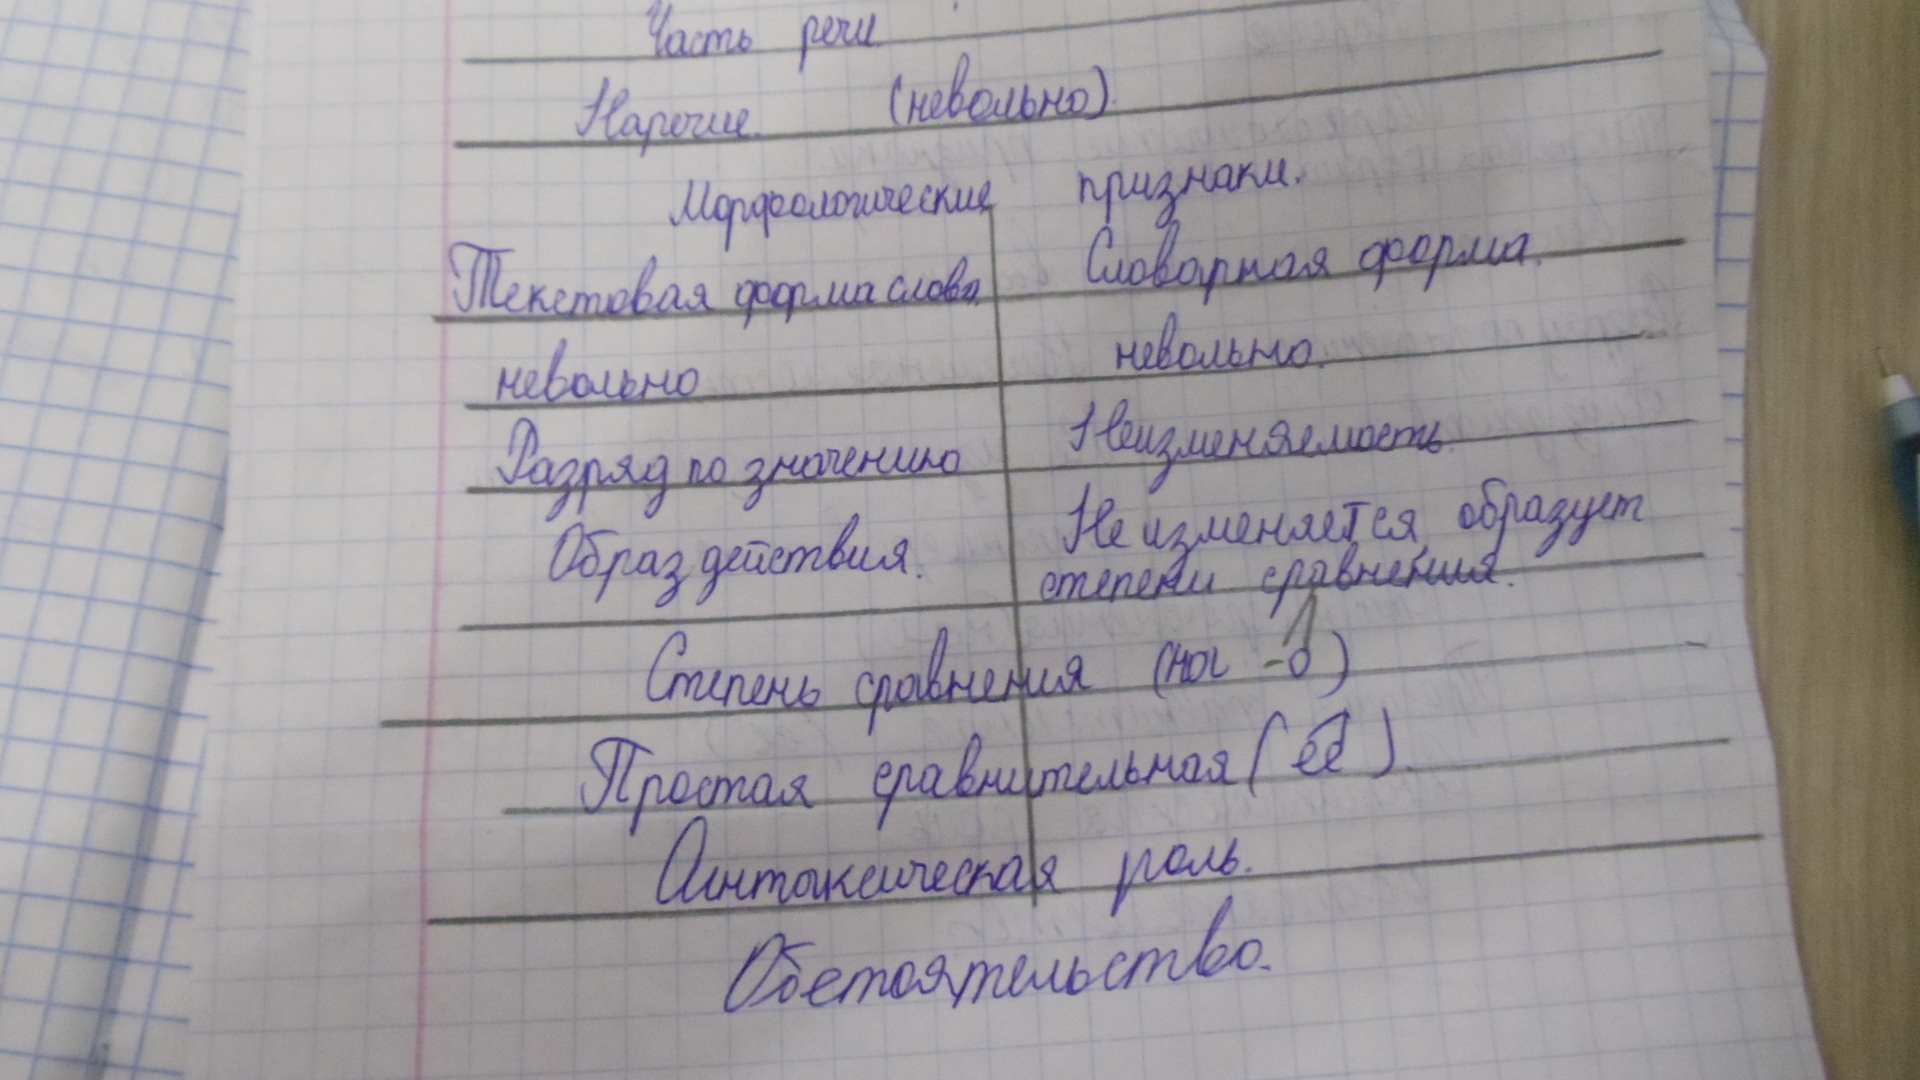 Часть речи
Наречие. (невольно).
Морфологические признаки.
Текстовая форма слова. Словарная форма.
невольно невольно.
Разряд по значению Неизменяемость.
Образ действия. Не изменяется, образует
степени сравнения.
Степень сравнения (на -о)
Простая сравнительная (ее).
Синтаксическая роль.
Обстоятельство.